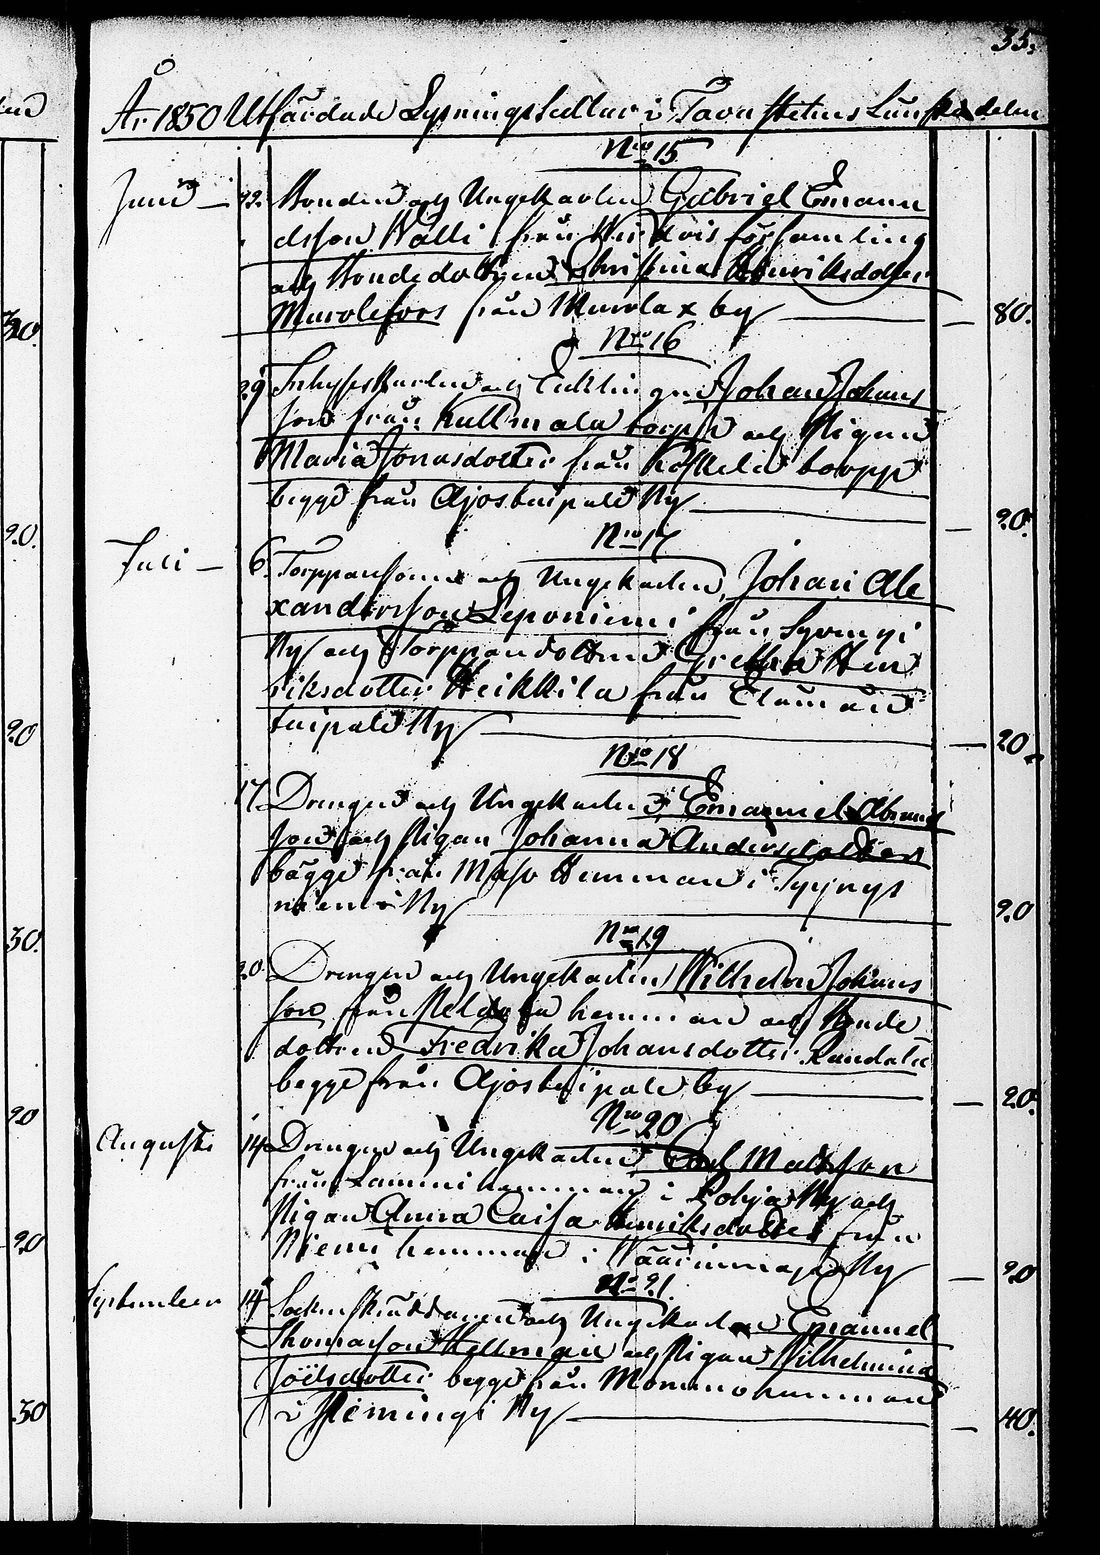 35.
År 1850 Utfärdade Lysningssedlar i Tavastehus Läns delen
Nro 15
Junii 22. Bonden och Ungekarlen Gabriel Emanu
elsson Walli från församling
och Bondedottren Christina Henriksdotter
Murolefors från Murola x by — 80.
Nro 16
29 Inhyseskarlen och Enklingen Johan Johans
son från Kullmala torp och Pigan
Maria Jonasdotter från torpp
begge från by — 20.
Nro 17
Juli 6. Torpparesonen och Ungekarlen Johan Ale
xandersson Leponiemi från
By och Torpparedottren Gretha Hen
riksdotter Heikkilä från
taipale By — 20.
Nro 18
17. Drengen och Ungekarlen Emanuel Abrams
son och Pigan Johanna Andersdotter
bägge från Hemman i
niemi By — 20
Nro 19
20. Drengen och Ungekarlen Wilhelm Johans
son från hemman och Bonde
dottren Fredrika Johansdotter
begge från by — 20.
Nro 20
Augusti 14. Drengen och Ungekarlen Carl Matsson
från Lammi hemman i Pohja By och
Pigan Anna Caisa Henriksdotter från
Niemi hemman i By — 20
No 21.
September 14 Sockenskräddaren och Ungekarlen Emanuel
Thomasson Hellman och Pigan Wilhelmina
Joëlsdotter begge från Mommo hemman
i By — 40.
30.
20.
20
30.
20
20
30